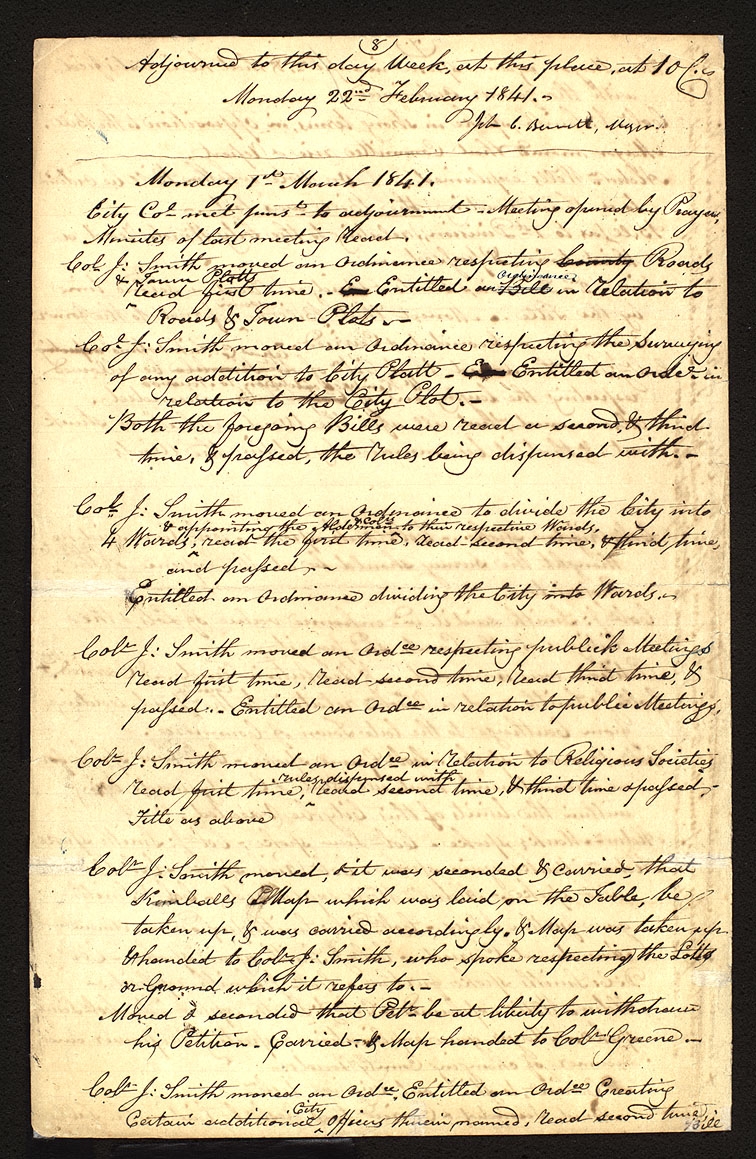 8
Adjourned to this day Week, at this place, at 10 C.
Monday 22nd February 1841.
John C. Bennett, Mayor.
Monday 1st March 1841.
City Col met purst to adjournment - Meeting opened by Prayer,
Minutes of last meeting Read.
Col J: Smith moved an Ordinance respecting County Roads
& Town Platts
Read first time. - Entitled an Bill in Relation to
Ordinance
Roads & Town Plots. -
Col J: Smith moved an Ordinance respecting the Surveying
of any addition to City Platt - Entitled an Orde in
relation to the City Plot. -
Both the foregoing Bills were read a second, & third
time, & passed, the rules being dispensed with. -
Col J: Smith moved an Ordinance to divide the City into
& appointing the Aldermen & Cols to their respective Wards.
4 Wards, read the first time, read second time, & third, time,
and passed. -
Entitled an Ordinance dividing the City into Wards. -
Colr J: Smith moved an Ordce respecting publick Meetings
read first time, read second time, read third time, &
passed. - Entitled an Ordce in relation to public Meetings.
Colr J: Smith moved an Ordce in relation to Religious Societies
rules dispensed with
read first time, read second time, & third time & passed -
Title as above
Colr J: Smith moved, & it was seconded & carried, that
Kimballs Map which was laid on the Table, be
taken up, & was carried accordingly. & Map was taken up
& handed to Colr J: Smith, who spoke respecting the Lotts
or Ground which it refers to. -
Moved & seconded that Petr be at liberty to withdraw
his Petition - Carried - & Map handed to Colr Greene. -
Colr J: Smith moved an Ordce. Entitled an Ordce Creating
City
Certain additional Officers therein named, read second time,
Bill